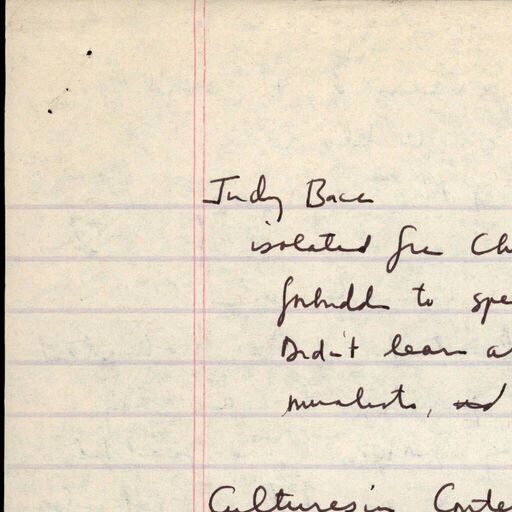 Judy Baca
isolated from Ch
forbidden to spe
Didn't learn a
muralists,
Cultures in Conte